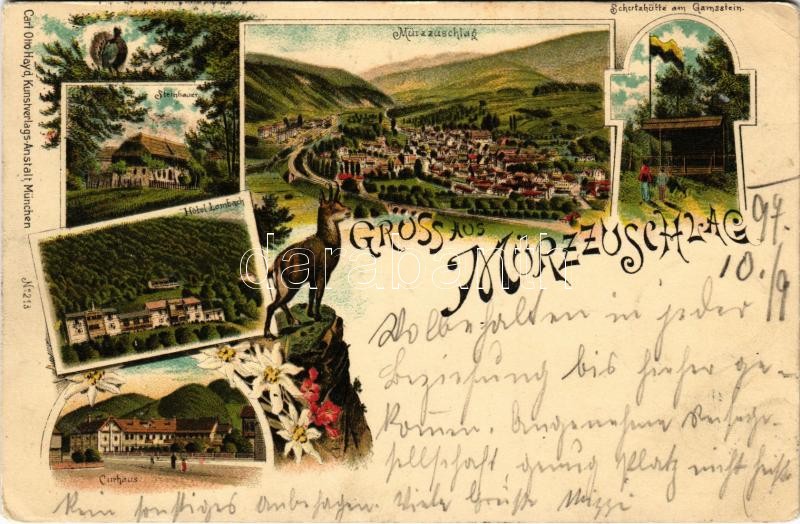 Carl Otto Hayd, Kunstverlags-Anstalt, München
No 213
Steinbauer
Mürzzuschlag
Schutzhütte am Gamsstein.
Hôtel Lambach
Curhaus
GRUSS AUS
MÜRZZUSCHLAG
darabanth
97.
10./9
Wolbehalten in jeder
Beziehung bis hieher ge-
kommen. Angenehme Reisege-
sellschaft genug Platz nicht heiß
kein sonstiges Unbehagen. Viele Grüße Mizzi